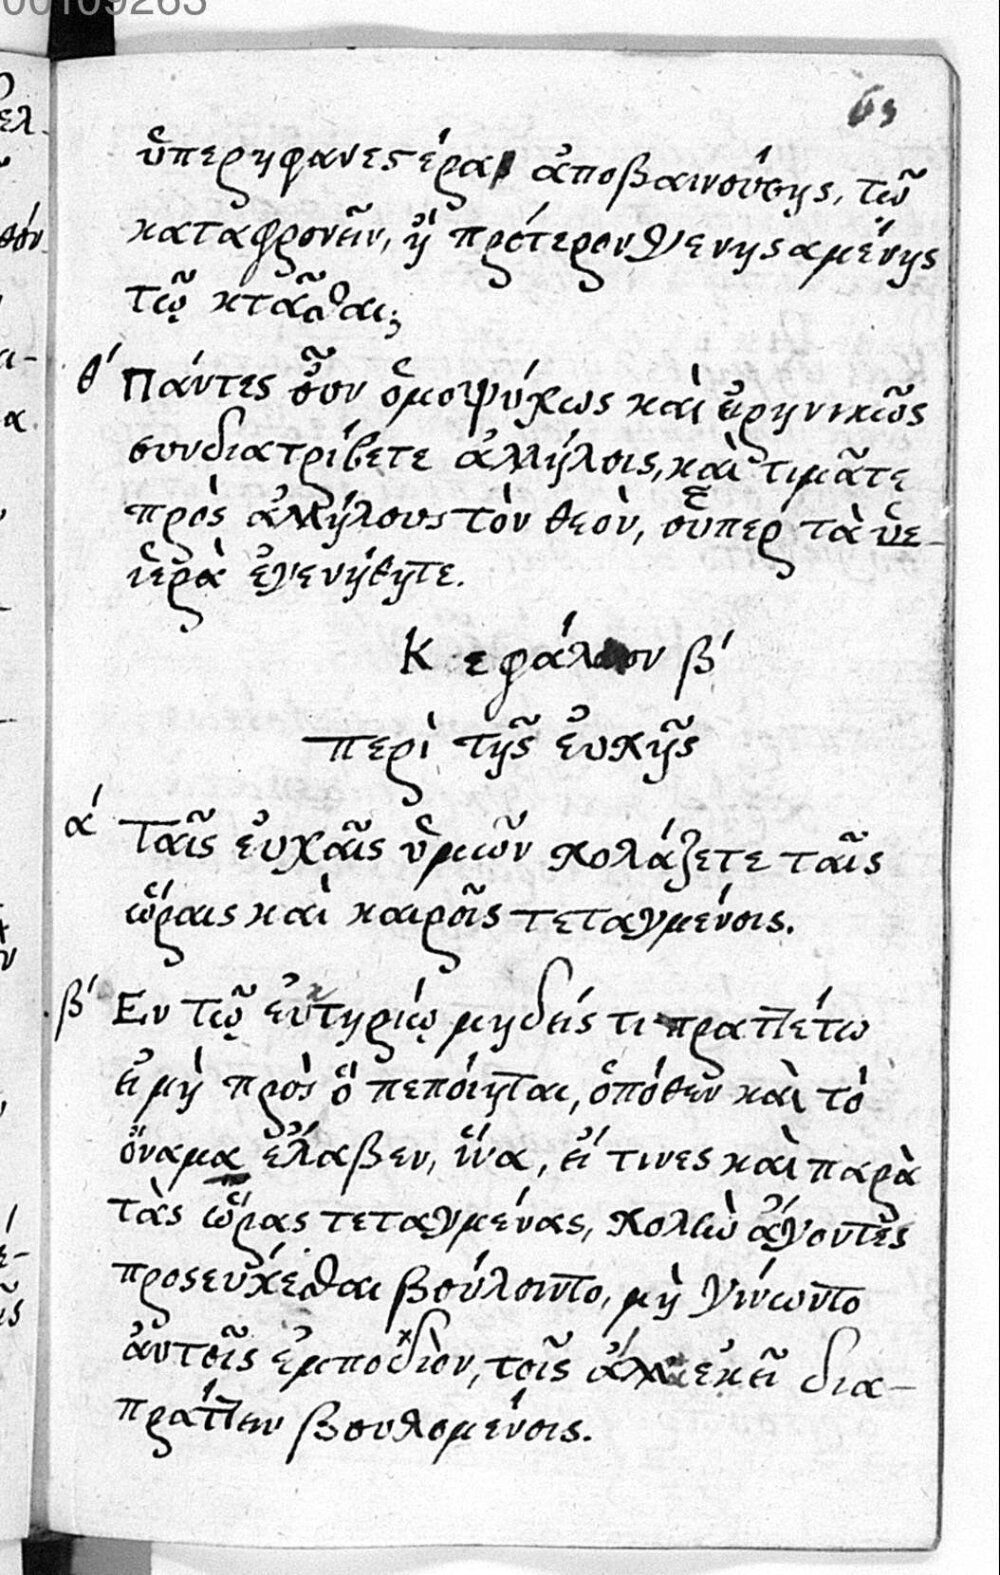 00109263
63
ὑπερηφανεςέρα ἀποβαινούσης, τῶ
καταφρονεῖν, ἢ πρότερον γενησαμένης
τῷ κτᾶσθαι;
θ΄ Πάντες οὖν ὁμοψύχως καὶ εἰρηνικῶς
συνδιατρίβετε ἀλλήλοις, καὶ τιμᾶτε
πρὸς ἀλλήλους τὸν θεὸν, οὗπερ τὰ ὑε-
ἱερὰ ἐγενήθητε.
Κεφάλαιον β΄
περὶ τῆς εὐχῆς
ά Ταῖς εὐχαῖς ὑμῶν χολάζετε ταῖς
ὥραις καὶ καιροῖς τεταγμένοις.
β΄ Εν τῷ εὐκτηρίῳ μηδείς τι πραττέτω
εἰ μὴ πρὸς ὃ πεπόιηται, ὁπόθεν καὶ τὸ
ὄναμα ἔλαβεν, ἵνα, εἴ τινες καὶ παρὰ
τὰς ὥρας τεταγμένας, χολὼ ἄγοντες
προσευχέσθαι βούλοιντο, μὴ γίνωντο
ἀυτοῖς ἐμποδιον, τοῖς ἀλλ ἐκεῖ δια-
πράττειν βουλομένοις.